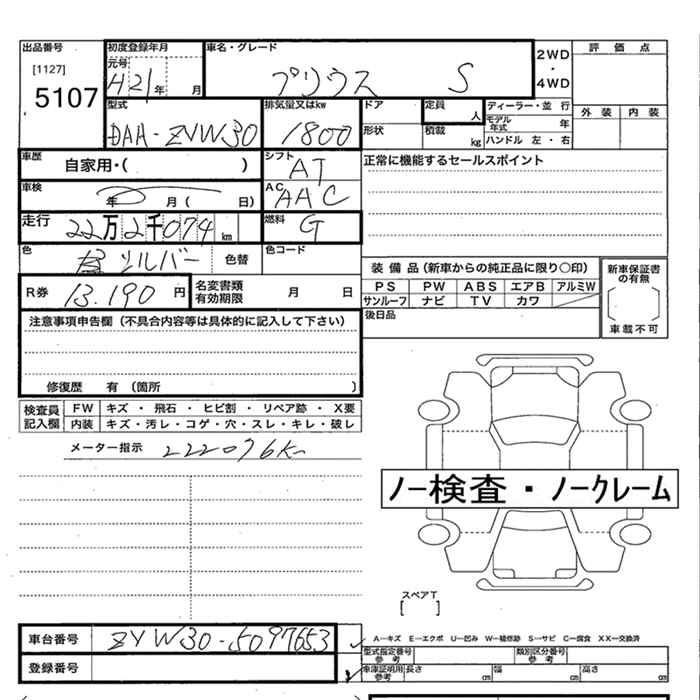 出品番号 初度登録年月 車名・グレード 2WD・4WD 評価点
[1127] 元号
5107 H21年 月 プリウス S
型式 排気量又はkw ドア 定員 人 ディーラー・並 行 外装 内装
DAA-ZVW30 1800 形状 積載 kg モデル年式 年
ハンドル 左・右
車歴 自家用・( ) シフト AT 正常に機能するセールスポイント
車検 年 月( 日) AC AAC
走行 22万2千074km 燃料 G
色 シルバー 色替 色コード
装備品(新車からの純正品に限り○印) 新車保証書の有無
R券 13.190円 名変書類有効期限 月 日 PS PW ABS エアB アルミW
サンルーフ ナビ TV カワ 車載不可
注意事項申告欄(不具合内容等は具体的に記入して下さい) 後日品
修復歴 有 (箇所 )
検査員記入欄 FW キズ・飛石・ヒビ割・リペア跡・X要
内装 キズ・汚レ・コゲ・穴・スレ・キレ・破レ
メーター指示 222076K
ノー検査・ノークレーム
スペアT
[ ]
車台番号 ZVW30-5097653 A−キズ E−エクボ U−凹み W−補修跡 S−サビ C−腐食 XX−交換済
型式指定番号 参考 類別区分番号 参考
登録番号 車庫証明用 参考 長さ cm 幅 cm 高さ cm